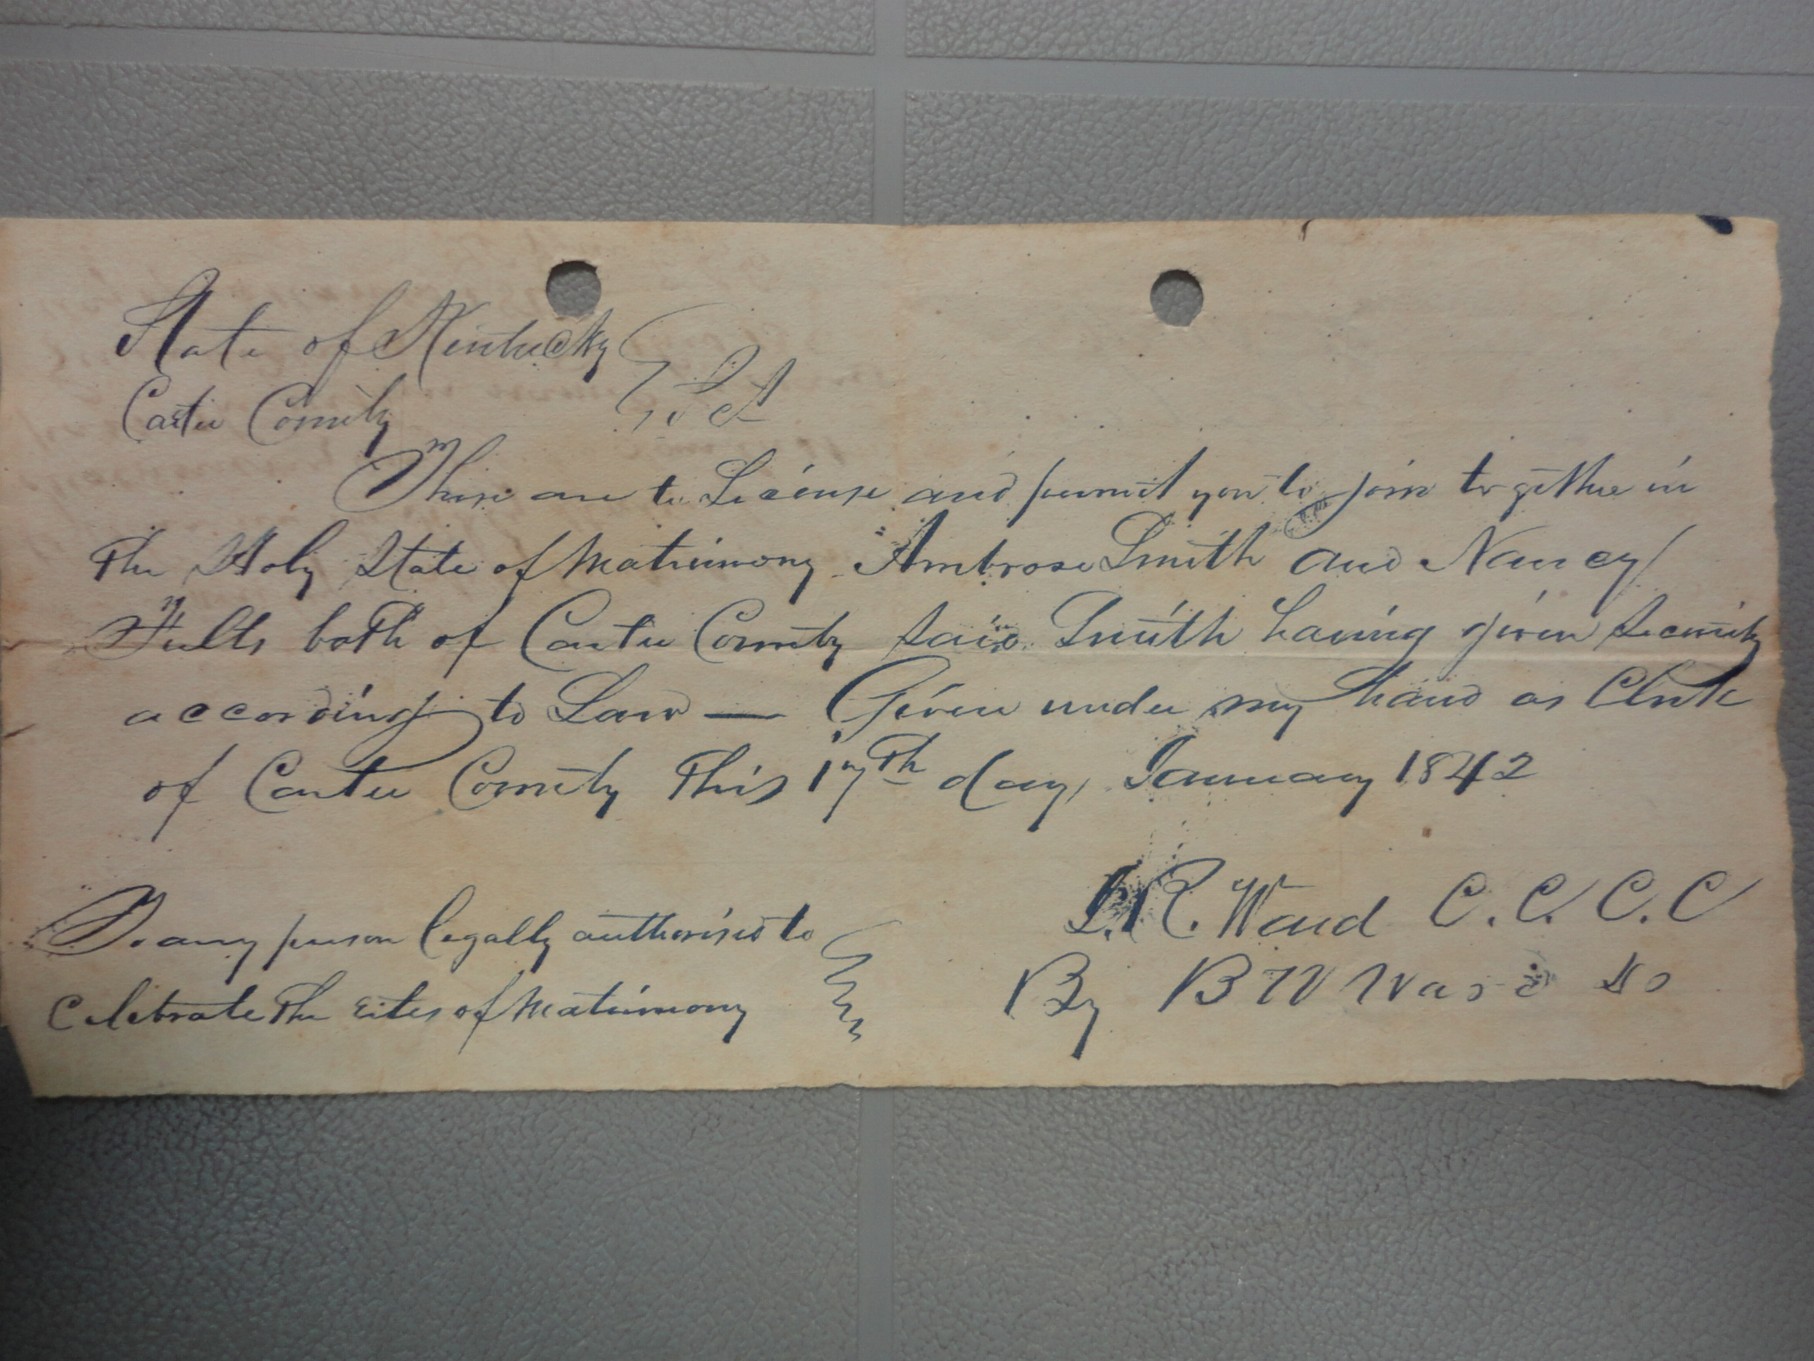 State of Kentucky
Carter County Sct
These are to License and permit you to join together in
the Holy State of Matrimony Ambrose Smith and Nancy
Fults both of Carter County said Smith having given Security
according to Law — Given under my hand as Clerk
of Carter County this 17th day January 1842
To any person legally authorised to
Celebrate the rites of Matrimony
Ward C. C. C. C
By B W Ward